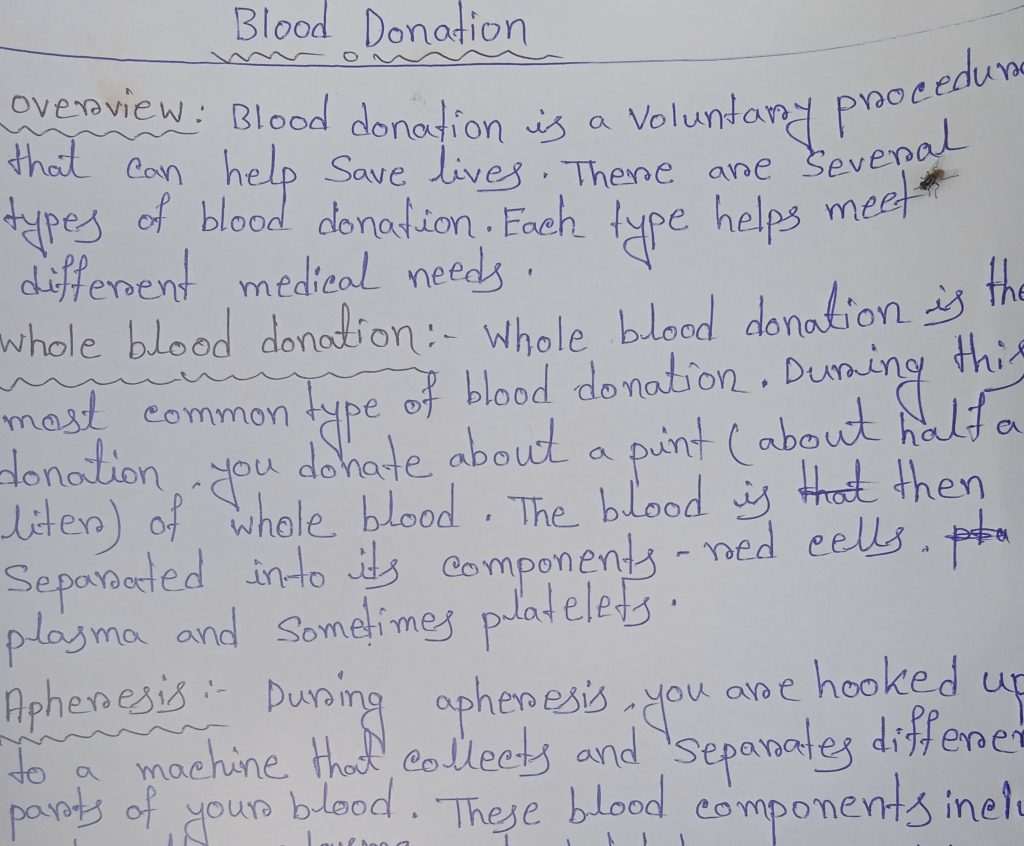 Blood Donation
overview: Blood donation is a Voluntary procedure
that can help Save lives. There are Several
types of blood donation. Each type helps meet
different medical needs.
Whole blood donation:- Whole blood donation is the
most common type of blood donation. During this
donation, you donate about a pint (about half a
liter) of whole blood. The blood is that then
Separated into its components - red cells. pla
plasma and Sometimes platelets.
Apheresis:- During apheresis, you are hooked up
to a machine that collects and Separates differen
parts of your blood. These blood components inclu